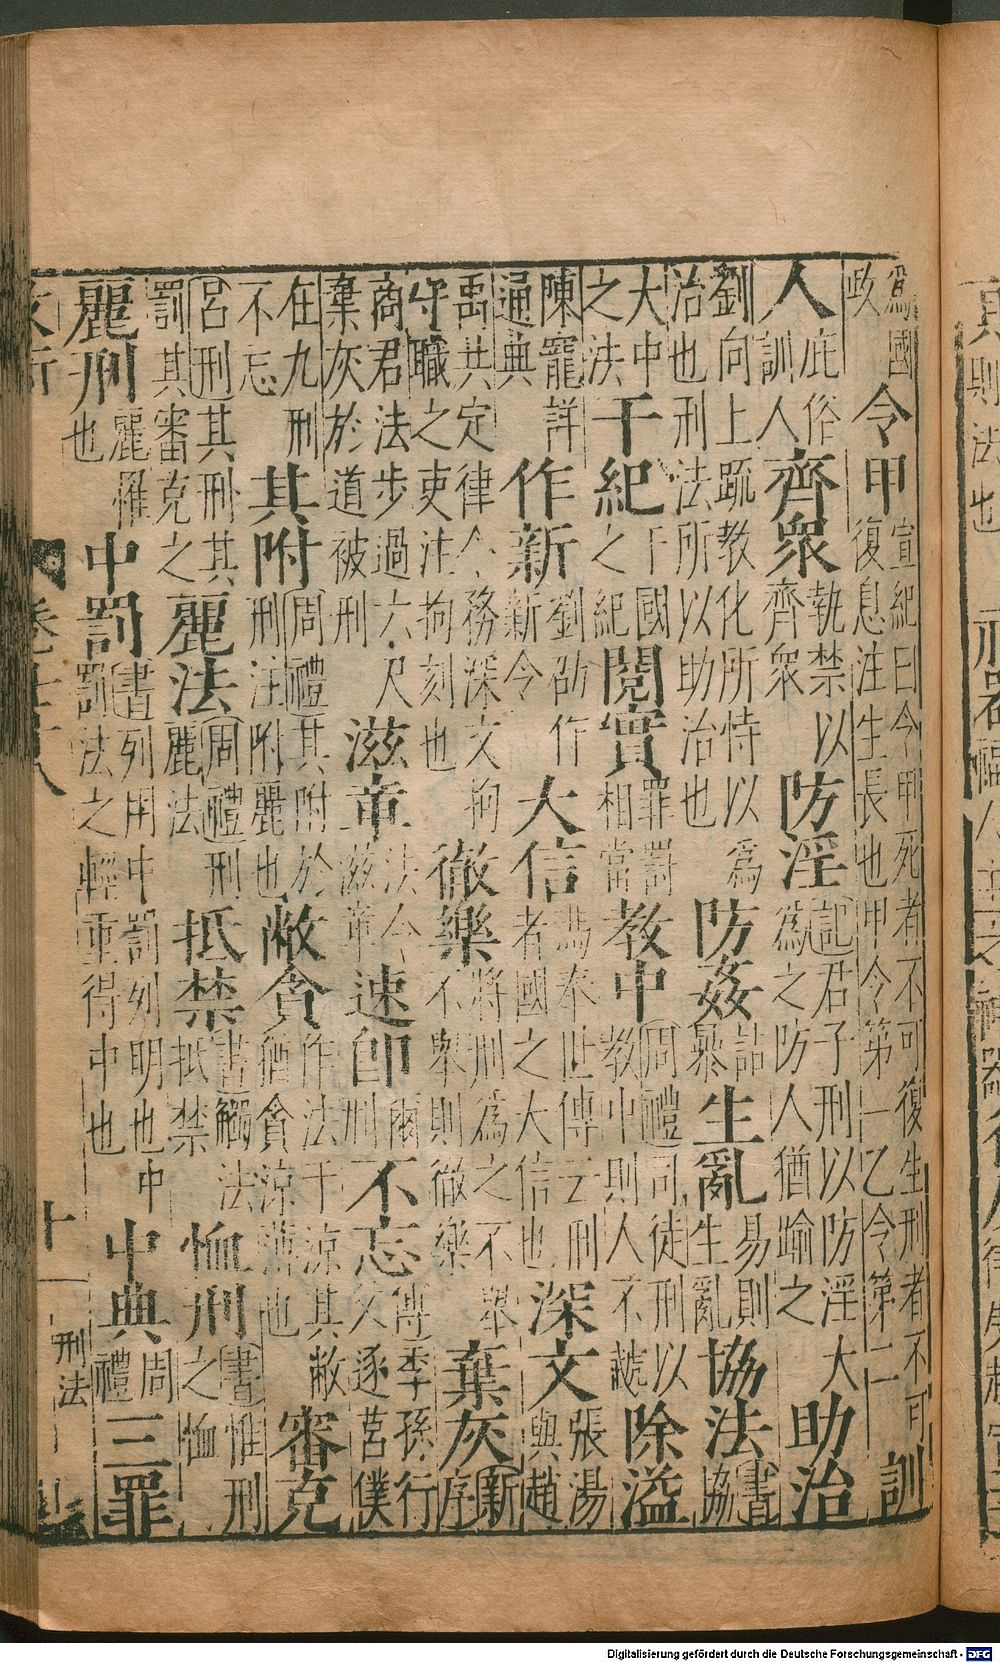 為國政令甲宣紀曰令甲死者不可復生刑者不可復息注生長也甲令第一乙令第二訓
人庇俗訓人齊眾執禁以齊眾防淫記君子刑以防淫大為之防人猶踰之助治
劉向上疏教化所恃以為治也刑法所以助治也防姦詰暴生亂易則生亂協法書協
大中之法干紀干國之紀閱實罪罰相當教中周禮司徒刑以教中則人不虣除溢
陳寵詳通典作新劉劭作新令大信馮奉世傳云刑者國之大信也深文張湯與趙
禹共定律令務深文拘守職之吏注拘刻也徹樂將刑為之不舉不舉則徹樂棄灰新序
商君法步過六尺棄灰於道被刑滋章法令滋章速即刑不忘傳季孫行父逐莒僕
在九刑不忘其附周禮其附於刑注附麗也敝貪作法于涼其敝猶貪涼薄也審克
呂刑其刑其罰其審克之麗法周禮刑麗法抵禁書觸法抵禁恤刑書惟刑之恤
麗刑麗罹也中罰書列用中罰列明也中罰法之輕重得中也中典周禮三罪
十 刑法
Digitalisierung gefördert durch die Deutsche Forschungsgemeinschaft - DFG